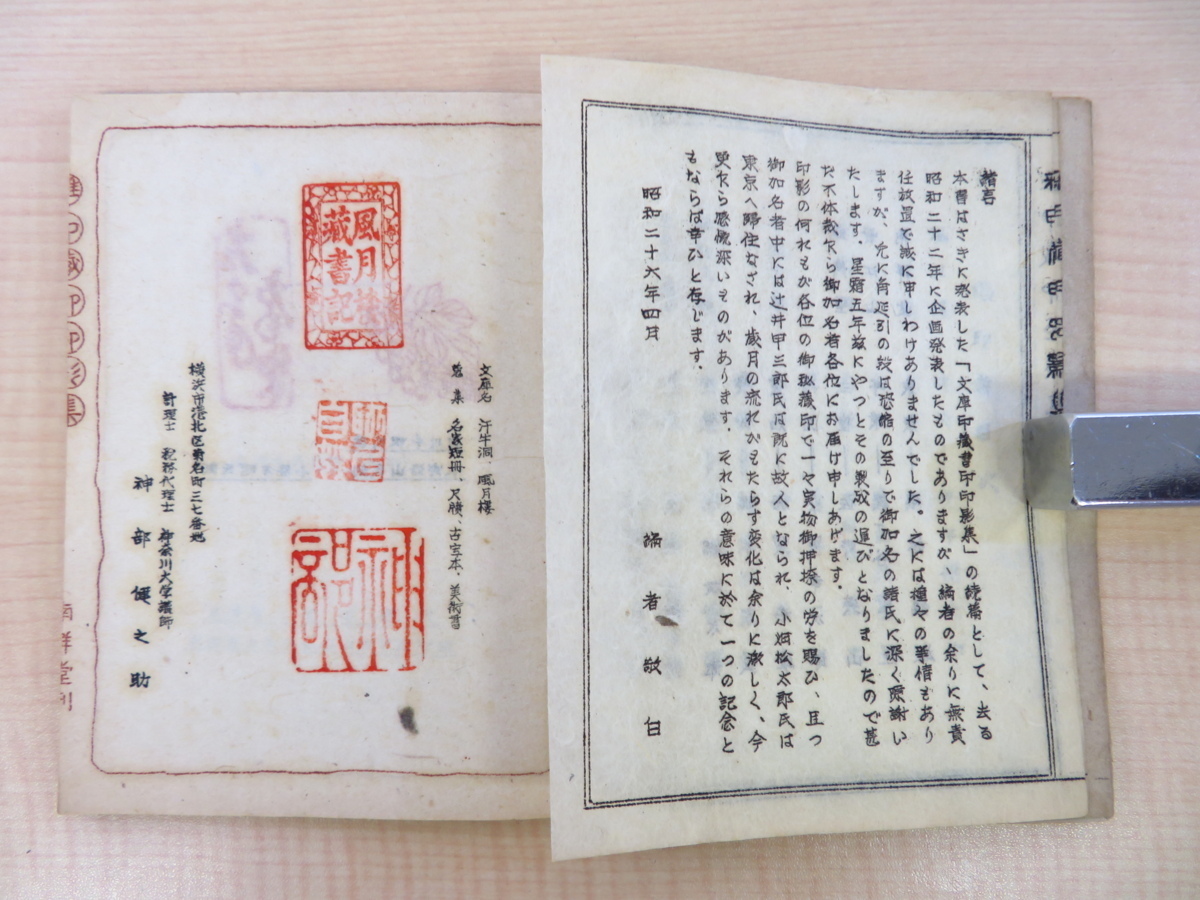 緒言
本書はさきに発表した「文庫印蔵書印印影集」の続篇として、去る
昭和二十二年に企画発表したものでありますが、編者の余りに無責
任放置で誠に申しわけありませんでした。之には種々の事情もあり
ますが、兎に角延引の段は恐縮の至りで御加名の諸氏に深く深謝い
たします。星霜五年玆にやつとその製成の運びとなりましたので甚
だ不体裁乍ら御加名者各位にお届け申しあげます。
印影の何れもが各位の御秘蔵印で一々実物御押捺の労を賜ひ、且つ
御加名者中には辻井甲三郎氏は既に故人となられ、小畑松太郎氏は
東京へ帰住なされ、歳月の流れがもたらす変化は余りに激しく、今
更乍ら感慨深いものがあります。それらの意味に於て一つの記念と
もならば幸ひと存じます。
昭和二十六年四月
編者敬白
風月楼
蔵書記
神部
文庫名 汗牛洞、風月楼
蒐集 名家短冊、尺牘、古写本、美術書
横浜市港北区菊名町三七番地
計理士 税務代理士 神奈川大学講師
神部健之助
南祥堂刊